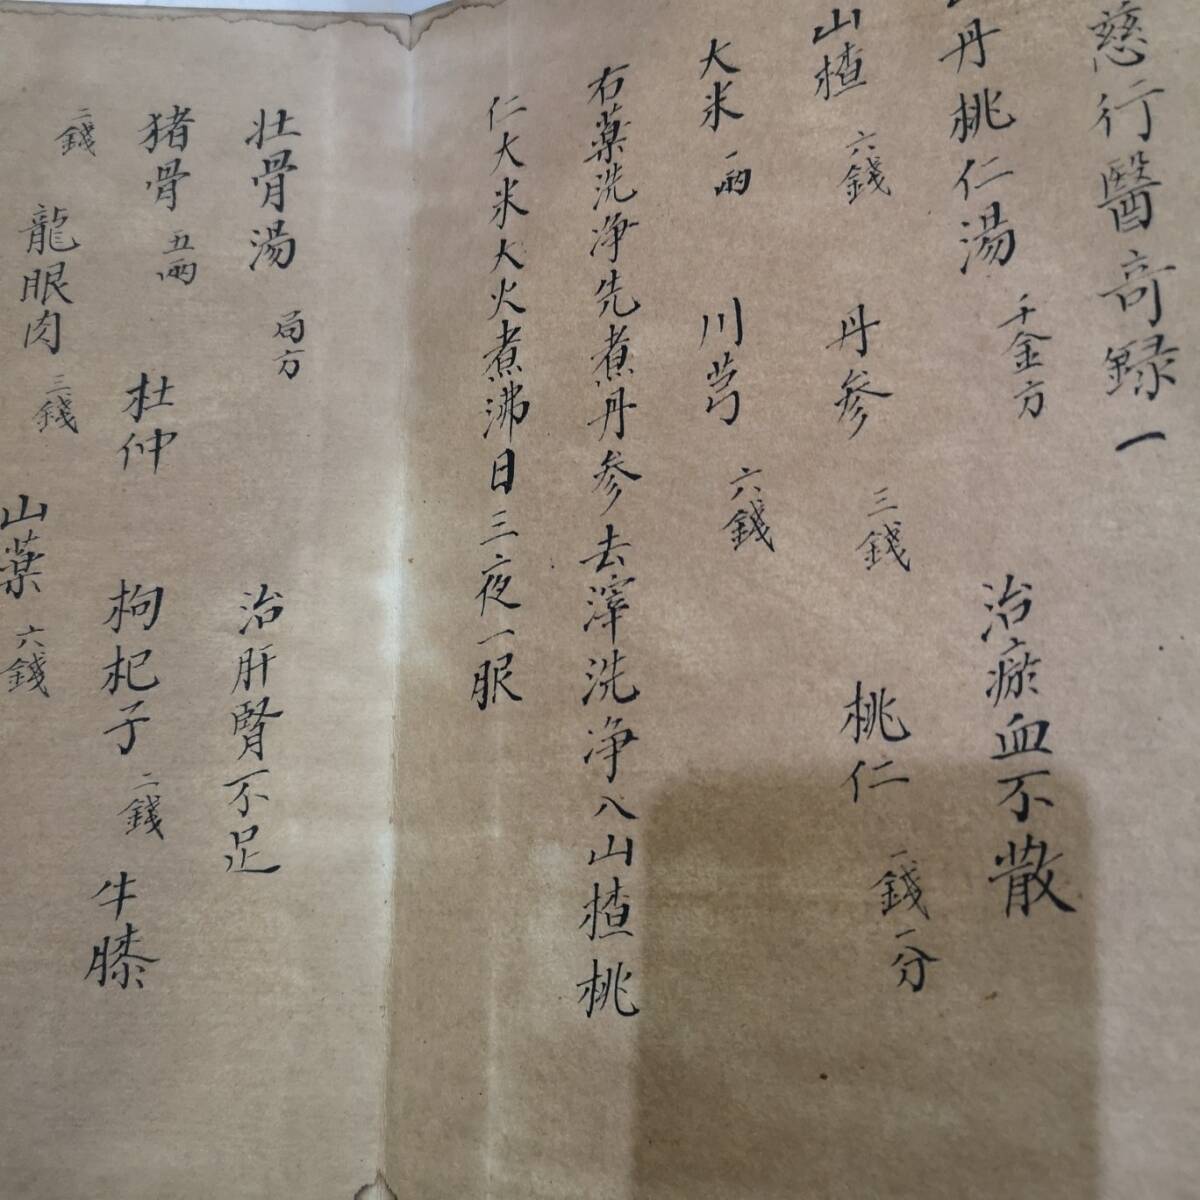 慈行醫奇録一
丹桃仁湯 千金方 治瘀血不散
山楂 六錢 丹参 三錢 桃仁 一錢一分
大米 一兩 川芎 六錢
右藥洗净先煮丹参去滓洗净八山楂桃
仁大米大火煮沸日三夜一服
壮骨湯 局方 治肝腎不足
猪骨 五兩 杜仲 枸杞子 二錢 牛膝
二錢 龍眼肉 三錢 山藥 六錢